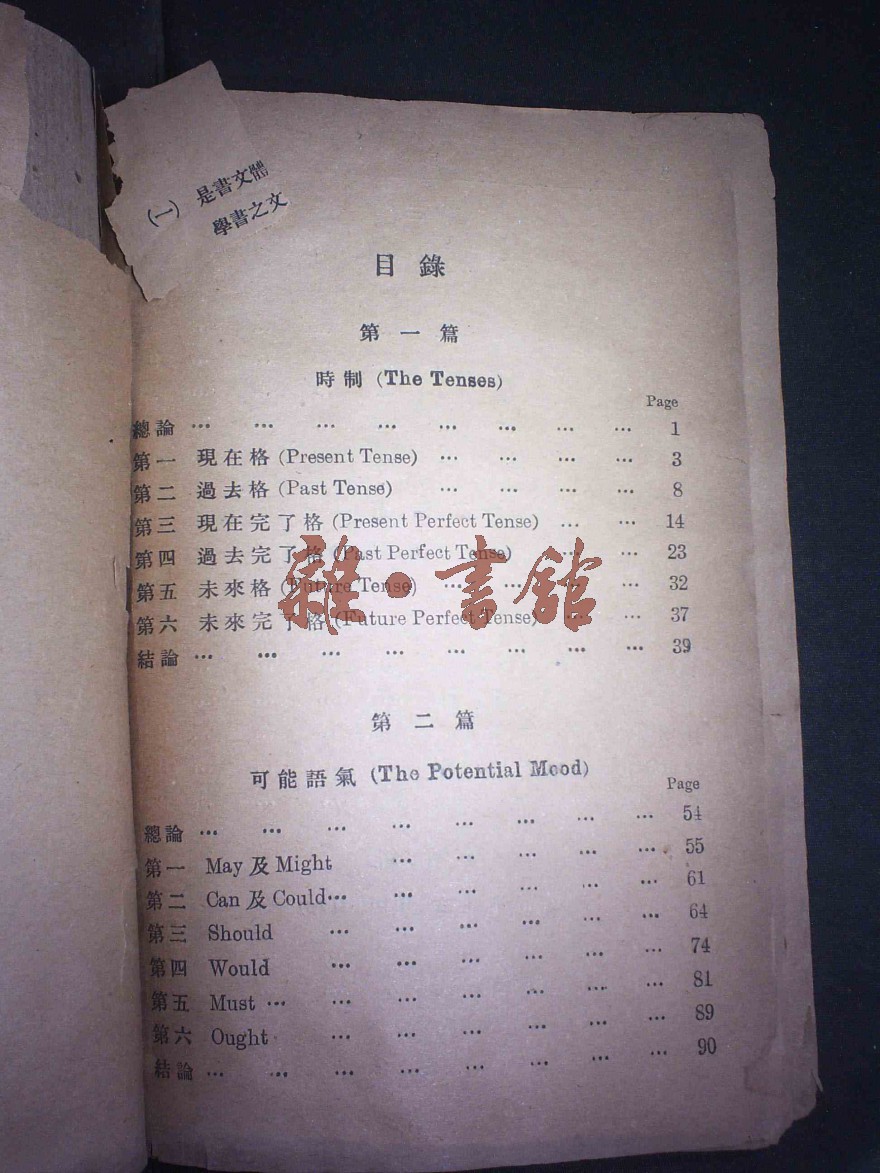 (一) 是書文體
學書之文
目錄
第一篇
時制 (The Tenses)
Page
總論 ... ... ... ... ... ... ... ... 1
第一 現在格 (Present Tense) ... ... ... ... 3
第二 過去格 (Past Tense) ... ... ... ... 8
第三 現在完了格 (Present Perfect Tense) ... ... 14
第四 過去完了格 (Past Perfect Tense) ... ... 23
第五 未來格 (Future Tense) ... ... ... ... 32
第六 未來完了格 (Future Perfect Tense) ... ... 37
結論 ... ... ... ... ... ... ... ... 39
雜·書館
第二篇
可能語氣 (The Potential Mood)
Page
總論 ... ... ... ... ... ... ... ... 54
第一 May 及 Might ... ... ... ... ... 55
第二 Can 及 Could... ... ... ... ... ... 61
第三 Should ... ... ... ... ... ... 64
第四 Would ... ... ... ... ... ... 74
第五 Must ... ... ... ... ... ... ... 81
第六 Ought ... ... ... ... ... ... 89
結論 ... ... ... ... ... ... ... ... 90